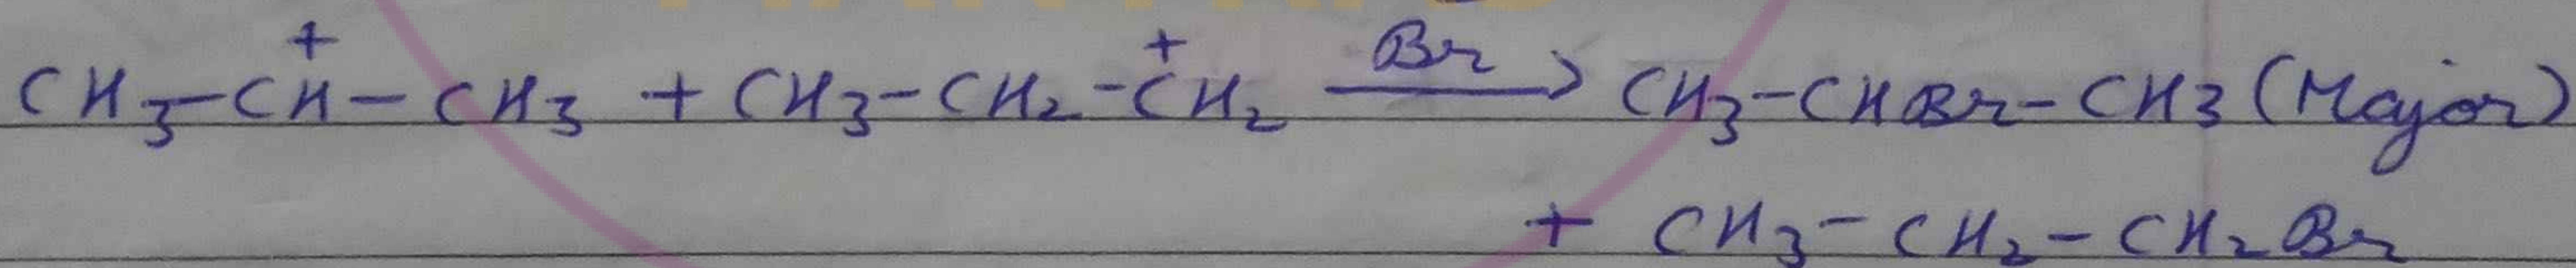 CH₃-C⁺H-CH₃ + CH₃-CH₂-C⁺H₂ —Br→ CH₃-CHBr-CH3 (Major)
+ CH₃-CH₂-CH₂Br